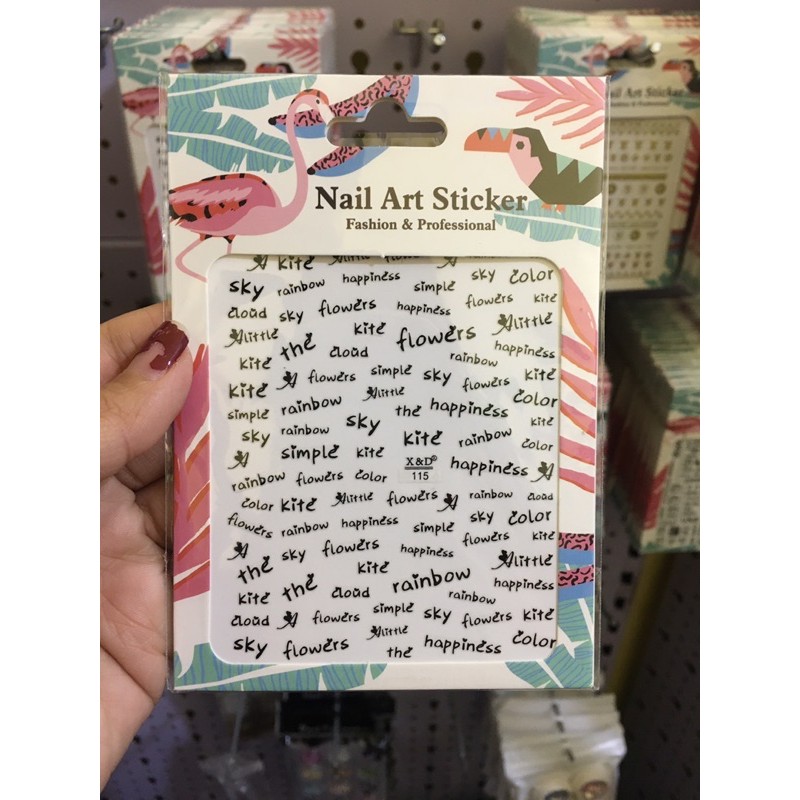 Nail Art Sticker
Fashion & Professional
A kite Alittle flowers A
sky rainbow happiness simple sky color
cloud sky flowers happiness flowers kite
Alittle the kite flowers Alittle
kite cloud rainbow happiness
kite A flowers simple sky flowers kite
simple rainbow Alittle the happiness color
sky rainbow sky kite rainbow kite
A simple kite X&D® happiness color A
115
rainbow flowers color
color kite Alittle flowers A rainbow cloud
flowers rainbow happiness simple sky color
A sky flowers happiness flowers kite
the kite Alittle
kite the cloud rainbow rainbow happiness
cloud A flowers simple sky flowers kite
sky flowers Alittle the happiness color
Nail Art Sticker